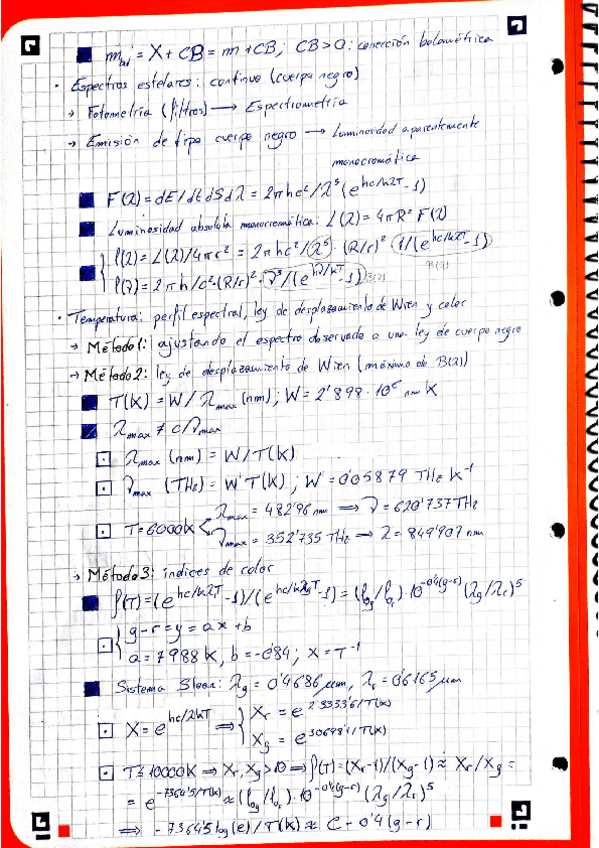 m_bol = X + CB = m + CB; CB>0: corrección bolométrica
· Espectros estelares: continuo (cuerpo negro)
→ Fotometría (filtros) → Espectrometría
→ Emisión de tipo cuerpo negro → Luminosidad aparentemente
monocromática
F(λ) = dE/dt dS dλ = 2πhc²/λ⁵(e^{hc/kλT} - 1)
Luminosidad absoluta monocromática: L(λ) = 4πR² F(λ)
l(λ) = L(λ)/4πr² = 2πhc²/λ⁵ · (R/r)² · 1/(e^{hc/kλT} - 1)
B(λ)
l(ν) = 2πh/c² · (R/r)² · ν³/(e^{hν/kT} - 1) B(ν)
· Temperatura: perfil espectral, ley de desplazamiento de Wien y color
→ Método 1: ajustando el espectro observado a una ley de cuerpo negro
→ Método 2: ley de desplazamiento de Wien (máximo de B(λ))
T(K) = W/λ_max (nm); W = 2'898·10⁶ nm K
λ_max ≠ c/ν_max
λ_max (nm) = W/T(K)
ν_max (THz) = W'T(K); W' = 0'05879 THz K⁻¹
T=6000K λ_max = 482'96 nm ⟹ ν = 620'737 THz
ν_max = 352'735 THz → λ = 849'907 nm
→ Método 3: índices de color
f(T) = (e^{hc/kλ_rT} - 1)/(e^{hc/kλ_gT} - 1) = (l_g/l_r)·10^{-0'4(g-r)} (λ_g/λ_r)⁵
g-r = y = ax + b
a = 7988 K, b = -0'84; x = T⁻¹
Sistema Sloan: λ_g = 0'4686 μm, λ_r = 0'6165 μm
X = e^{hc/λkT} ⟹ X_r = e^{23333'6/T(K)}
X_g = e^{30698'1/T(K)}
T ≤ 10000K ⟹ X_r, X_g > 10 ⟹ f(T) = (X_r-1)/(X_g-1) ≈ X_r/X_g =
= e^{-7364'5/T(K)} ≈ (l_0g/l_0r)·10^{-0'4(g-r)} (λ_g/λ_r)⁵
⟹ -7364'5 log(e)/T(K) ≈ C - 0'4(g-r)